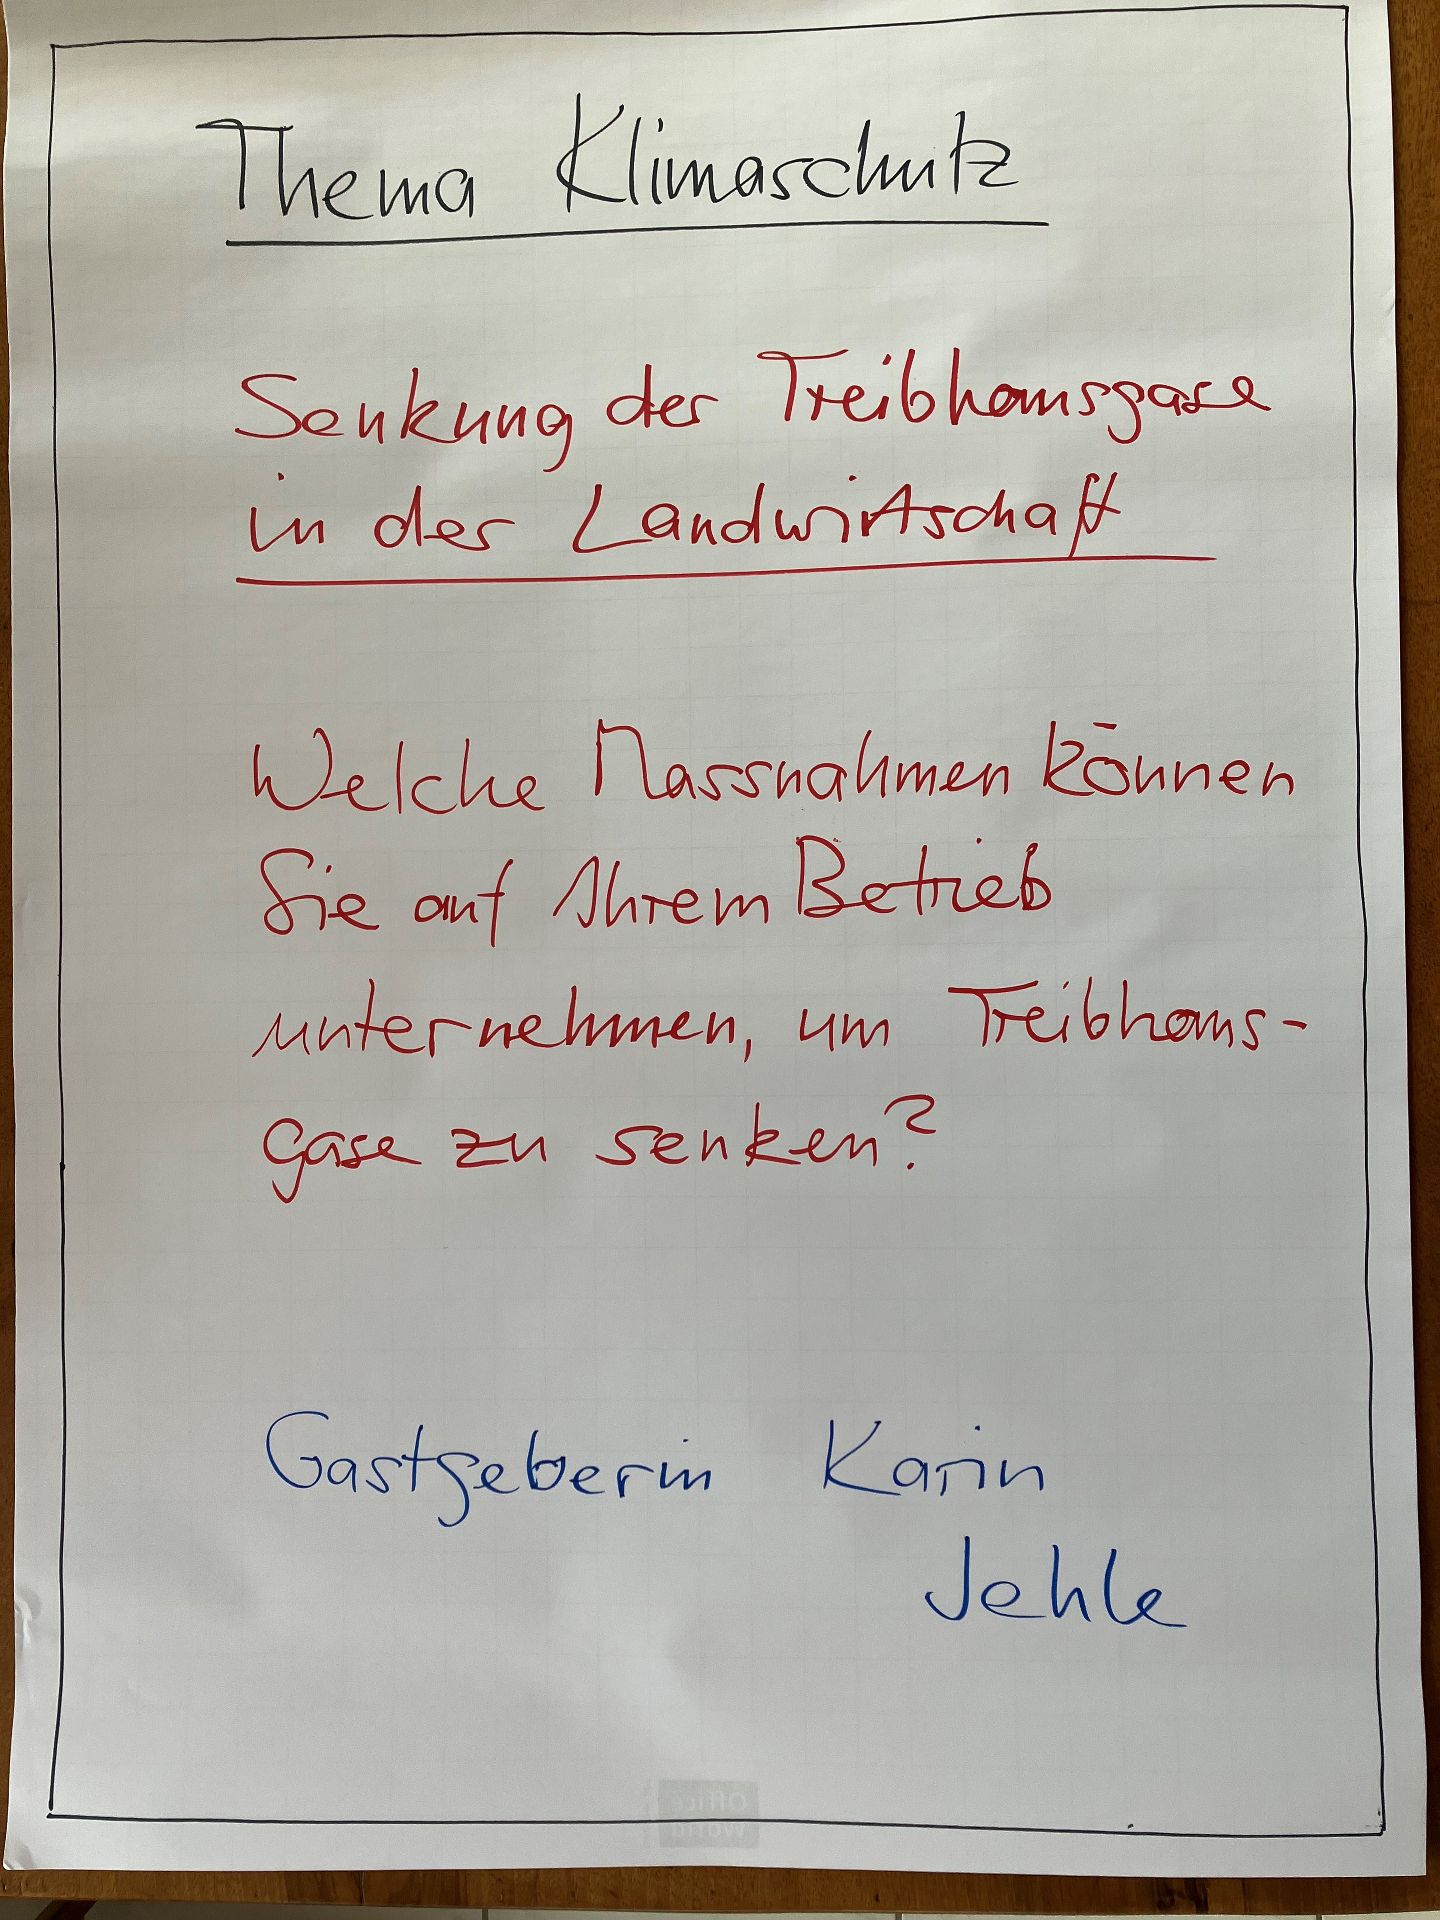 Thema Klimaschutz
Senkung der Treibhausgase
in der Landwirtschaft
Welche Massnahmen können
Sie auf Ihrem Betrieb
unternehmen, um Treibhaus-
gase zu senken?
Gastgeberin Karin
Jehle